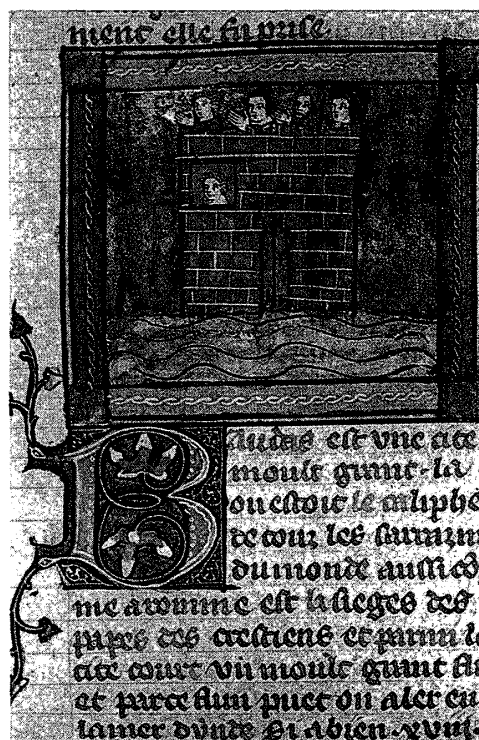 ment elle fu prise
Baudas est vne cite
moult grant la
ou estoit le caliphe
de touz les sarrazin
du monde aussi cō
me a romme est li sieges des
papes des crestiens et parmi la
cite court vn moult grant flu
et par ce flun puet on aler en
la mer dynde Si a bien .xviii.